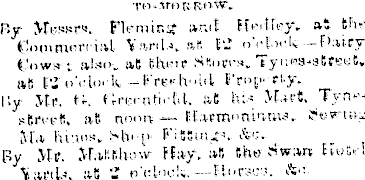 TO-MORROW.
By Messrs. Fleming and Hedley, at the
Commercial Yards, at 12 o'clock—Dairy
Cows; also, at their Stores, Tynes-street,
at 12 o'clock—Freehold Property.
By Mr. G. Greenfield, at his Mart, Tyne-
street, at noon — Harmoniums, Sewing
Machines, Shop Fittings, &c.
By Mr. Matthew Hay, at the Swan Hotel
Yards, at 2 o'clock.—Horses, &c.